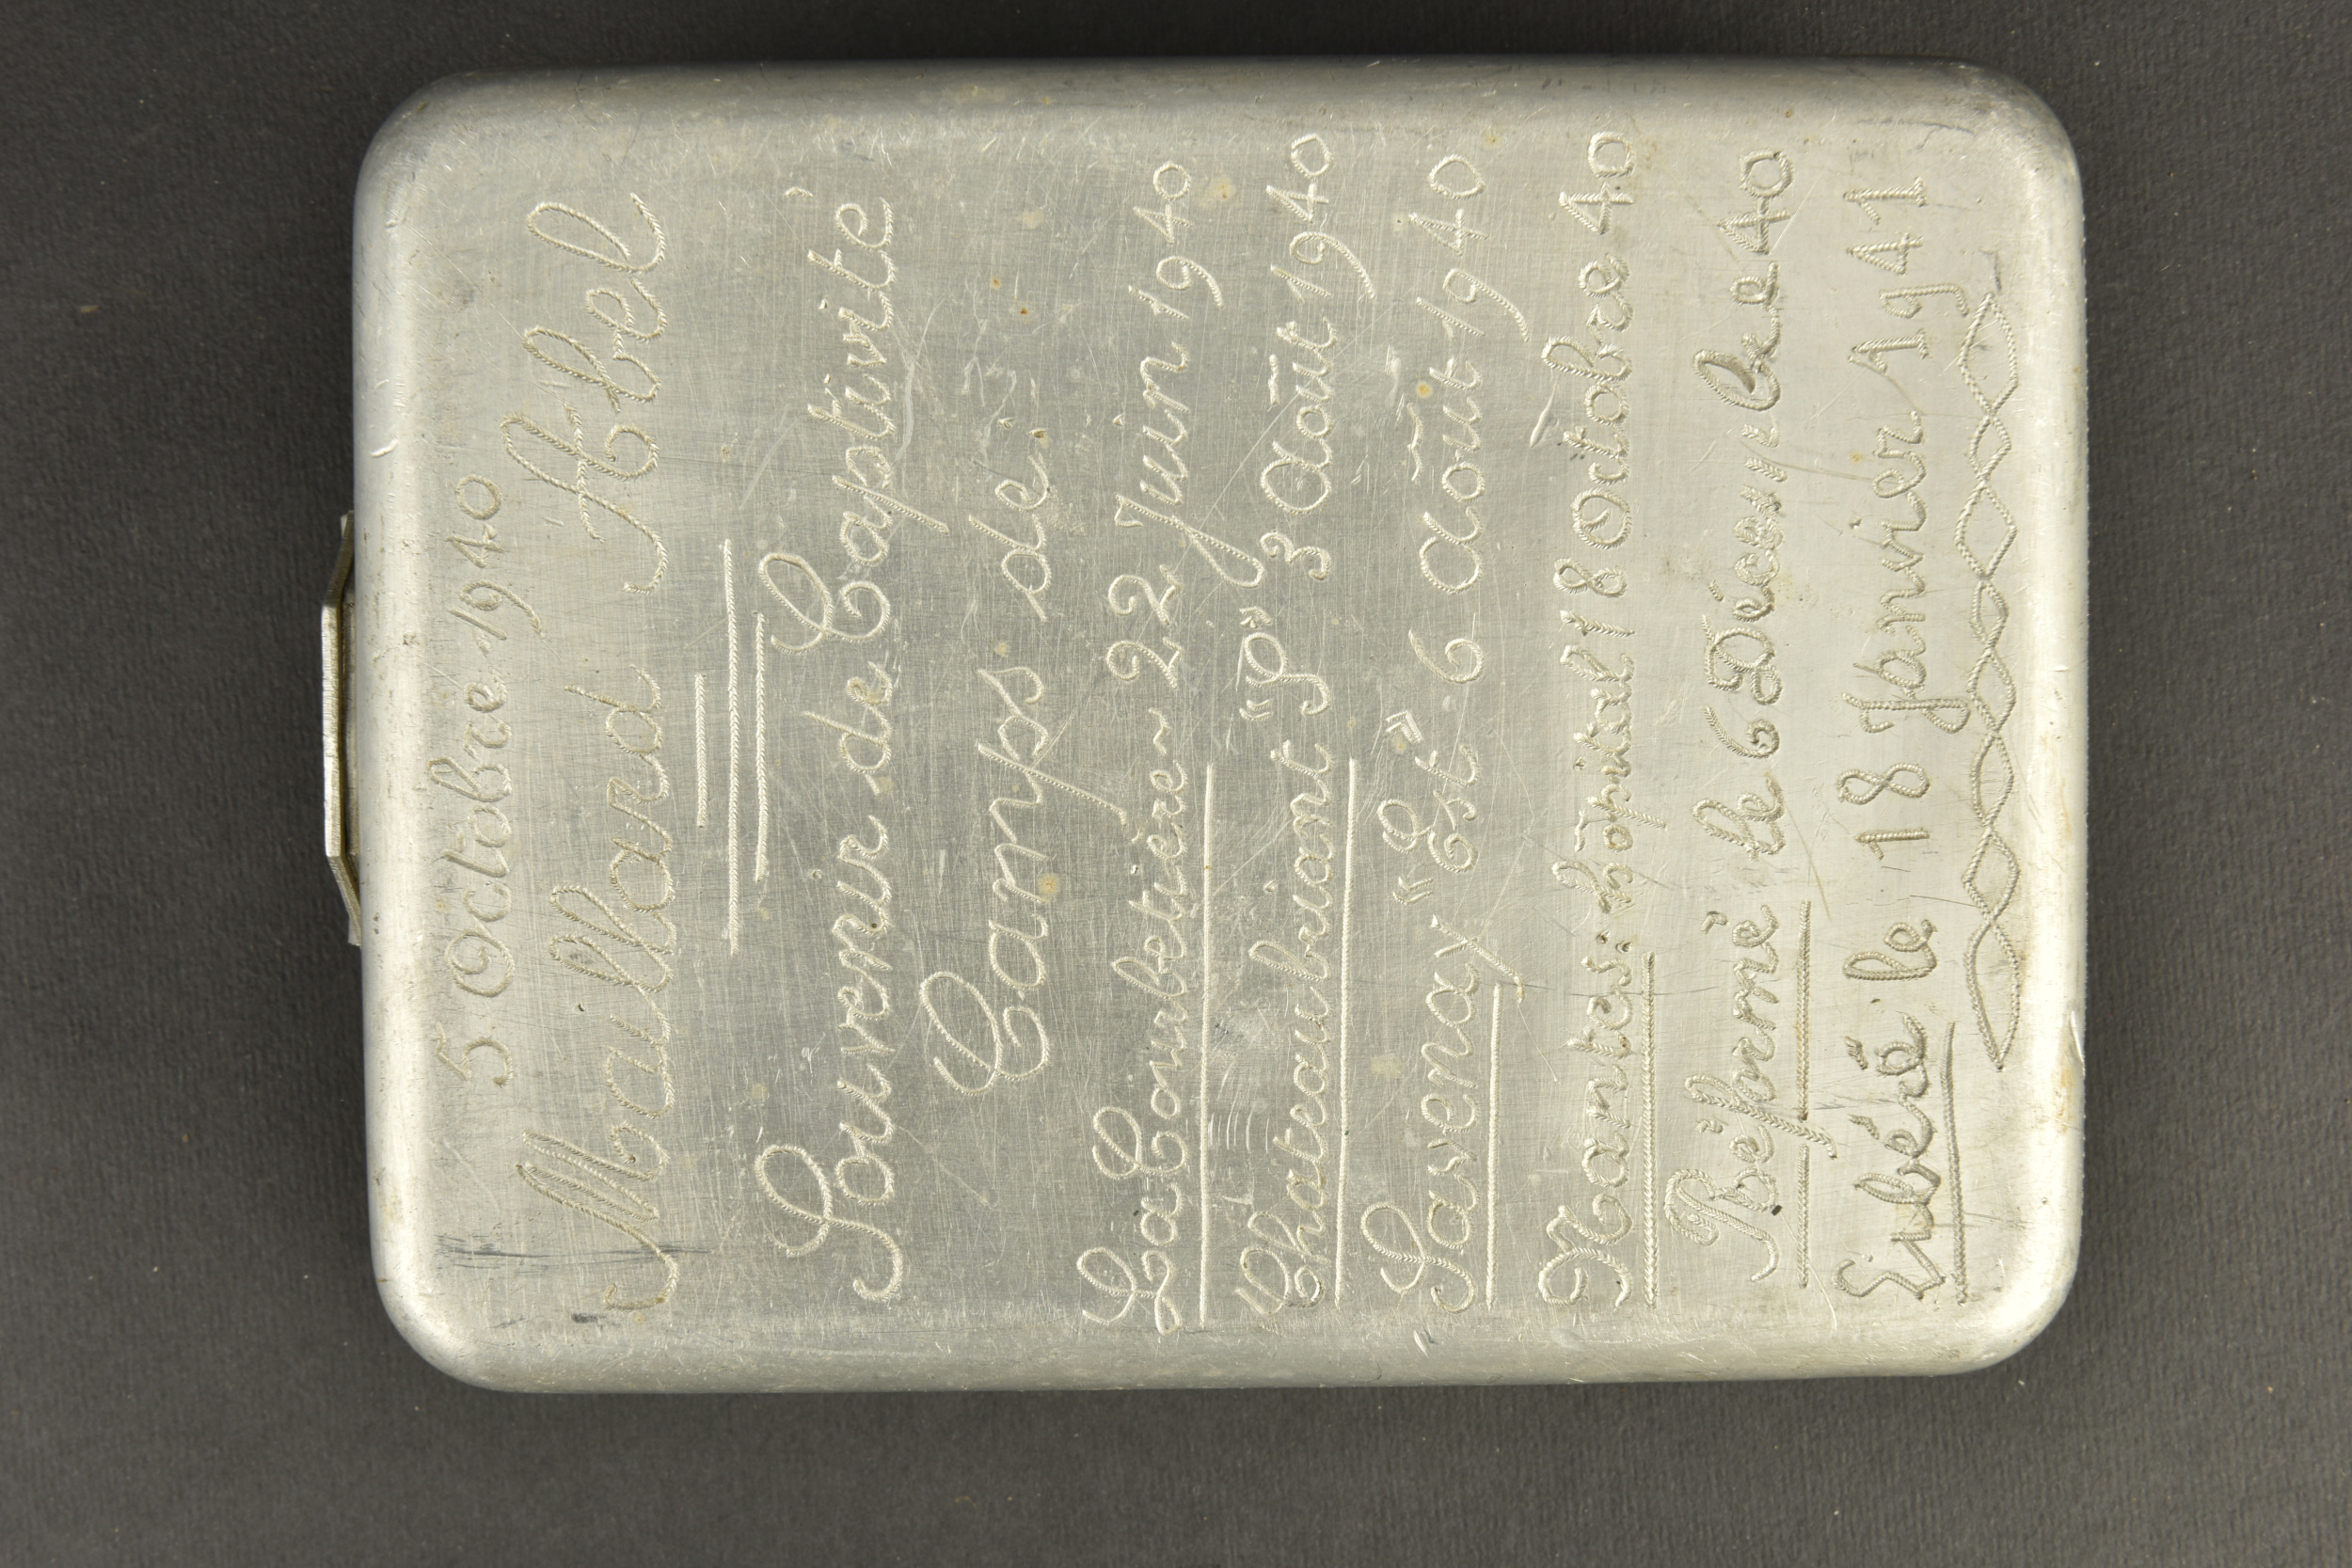 5 Octobre 1940
Maillard Abel
Souvenir de Captivité
Camps de:
La Courbetière 22 Juin 1940
Chateaubriant "P" 3 Août 1940
Savenay "Est" 6 Août 1940
Nantes: hôpital 18 Octobre 40
Réformé le 6 Décembre 40
Libéré le 18 Janvier 1941